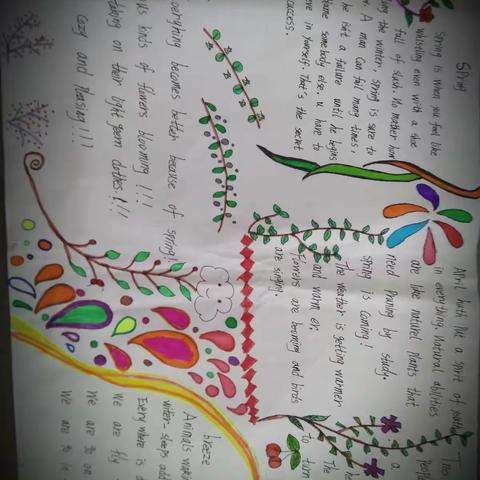 Spring
Spring is when you feel like
whistling even with a shoe
full of slush. No mather how
the winter, spring is sure to
A man can fail many times,
he isn't a failure until he begins
blame somebody else. u have to
in yourself. That's the secret
success.
everything becomes better because of spring!
kinds of flowers blooming !!!
on their light green clothes.!!!
Cozy and pleasing!!!!
April hath put a spirit of youth
in everything. Natural abilities
are like naturel plants that
need pruning by study.
spring is coming!
The weather is getting warmer
and warm er.
flowers are booming and birds
are singing.
a
The
to turn
breeze
Animals
Every where is
We are fly
We are so on
We are so in